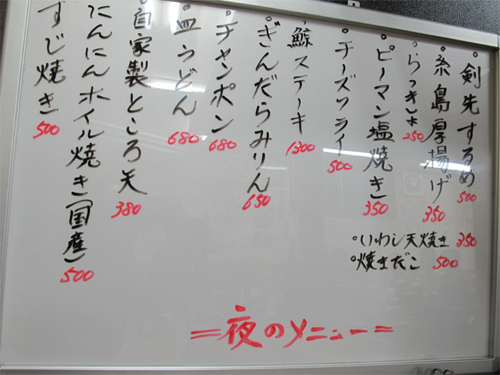 剣先するめ 500
糸島厚揚げ 350
らっきょ 250
ピーマン塩焼き 350
チーズフライ 500
鯨ステーキ 1300
ぎんだらみりん 650
チャンポン 680
皿うどん 680
自家製ところ天 380
にんにんホイル焼き(国産) 500
すじ焼き 500
いわし天焼き 350
焼きだこ 500
=夜のメニュー=